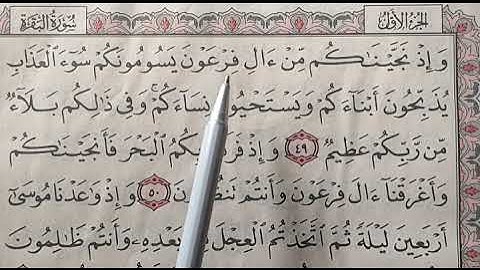 الجزء الأول
سورة البقرة
وَإِذْ نَجَّيْنَٰكُم مِّنْ ءَالِ فِرْعَوْنَ يَسُومُونَكُمْ سُوٓءَ ٱلْعَذَابِ
يُذَبِّحُونَ أَبْنَآءَكُمْ وَيَسْتَحْيُونَ نِسَآءَكُمْ ۚ وَفِى ذَٰلِكُم بَلَآءٌ
مِّن رَّبِّكُمْ عَظِيمٌ ٤٩ وَإِذْ ٱلْبَحْرَ فَأَنجَيْنَٰكُمْ
وَأَغْرَقْنَآ ءَالَ فِرْعَوْنَ وَأَنتُمْ تَنظُرُونَ ٥٠ وَإِذْ وَٰعَدْنَا مُوسَىٰٓ
أَرْبَعِينَ لَيْلَةً ثُمَّ ٱتَّخَذْتُمُ ٱلْعِجْلَ بَعْدِهِۦ وَأَنتُمْ ظَٰلِمُونَ